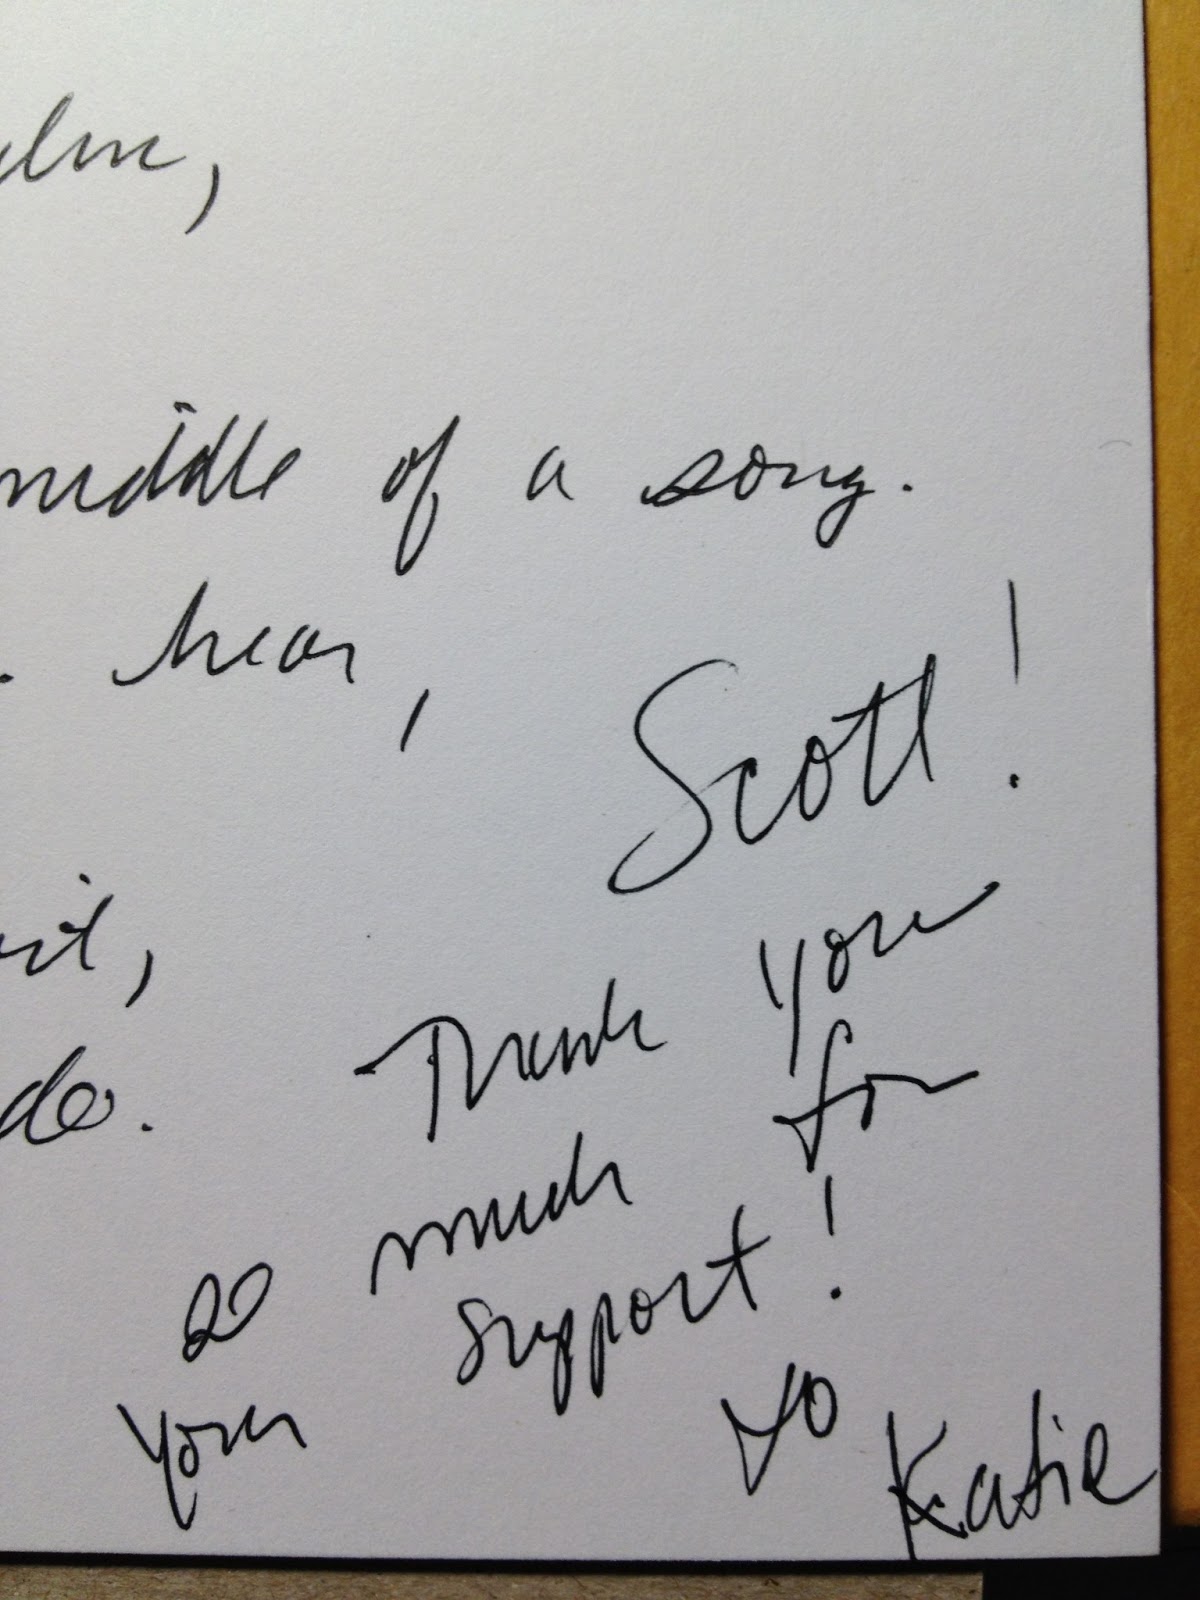 middle of a song.
hear,
do.
Scott!
Thank you
so much for
your support!
xo
Katie